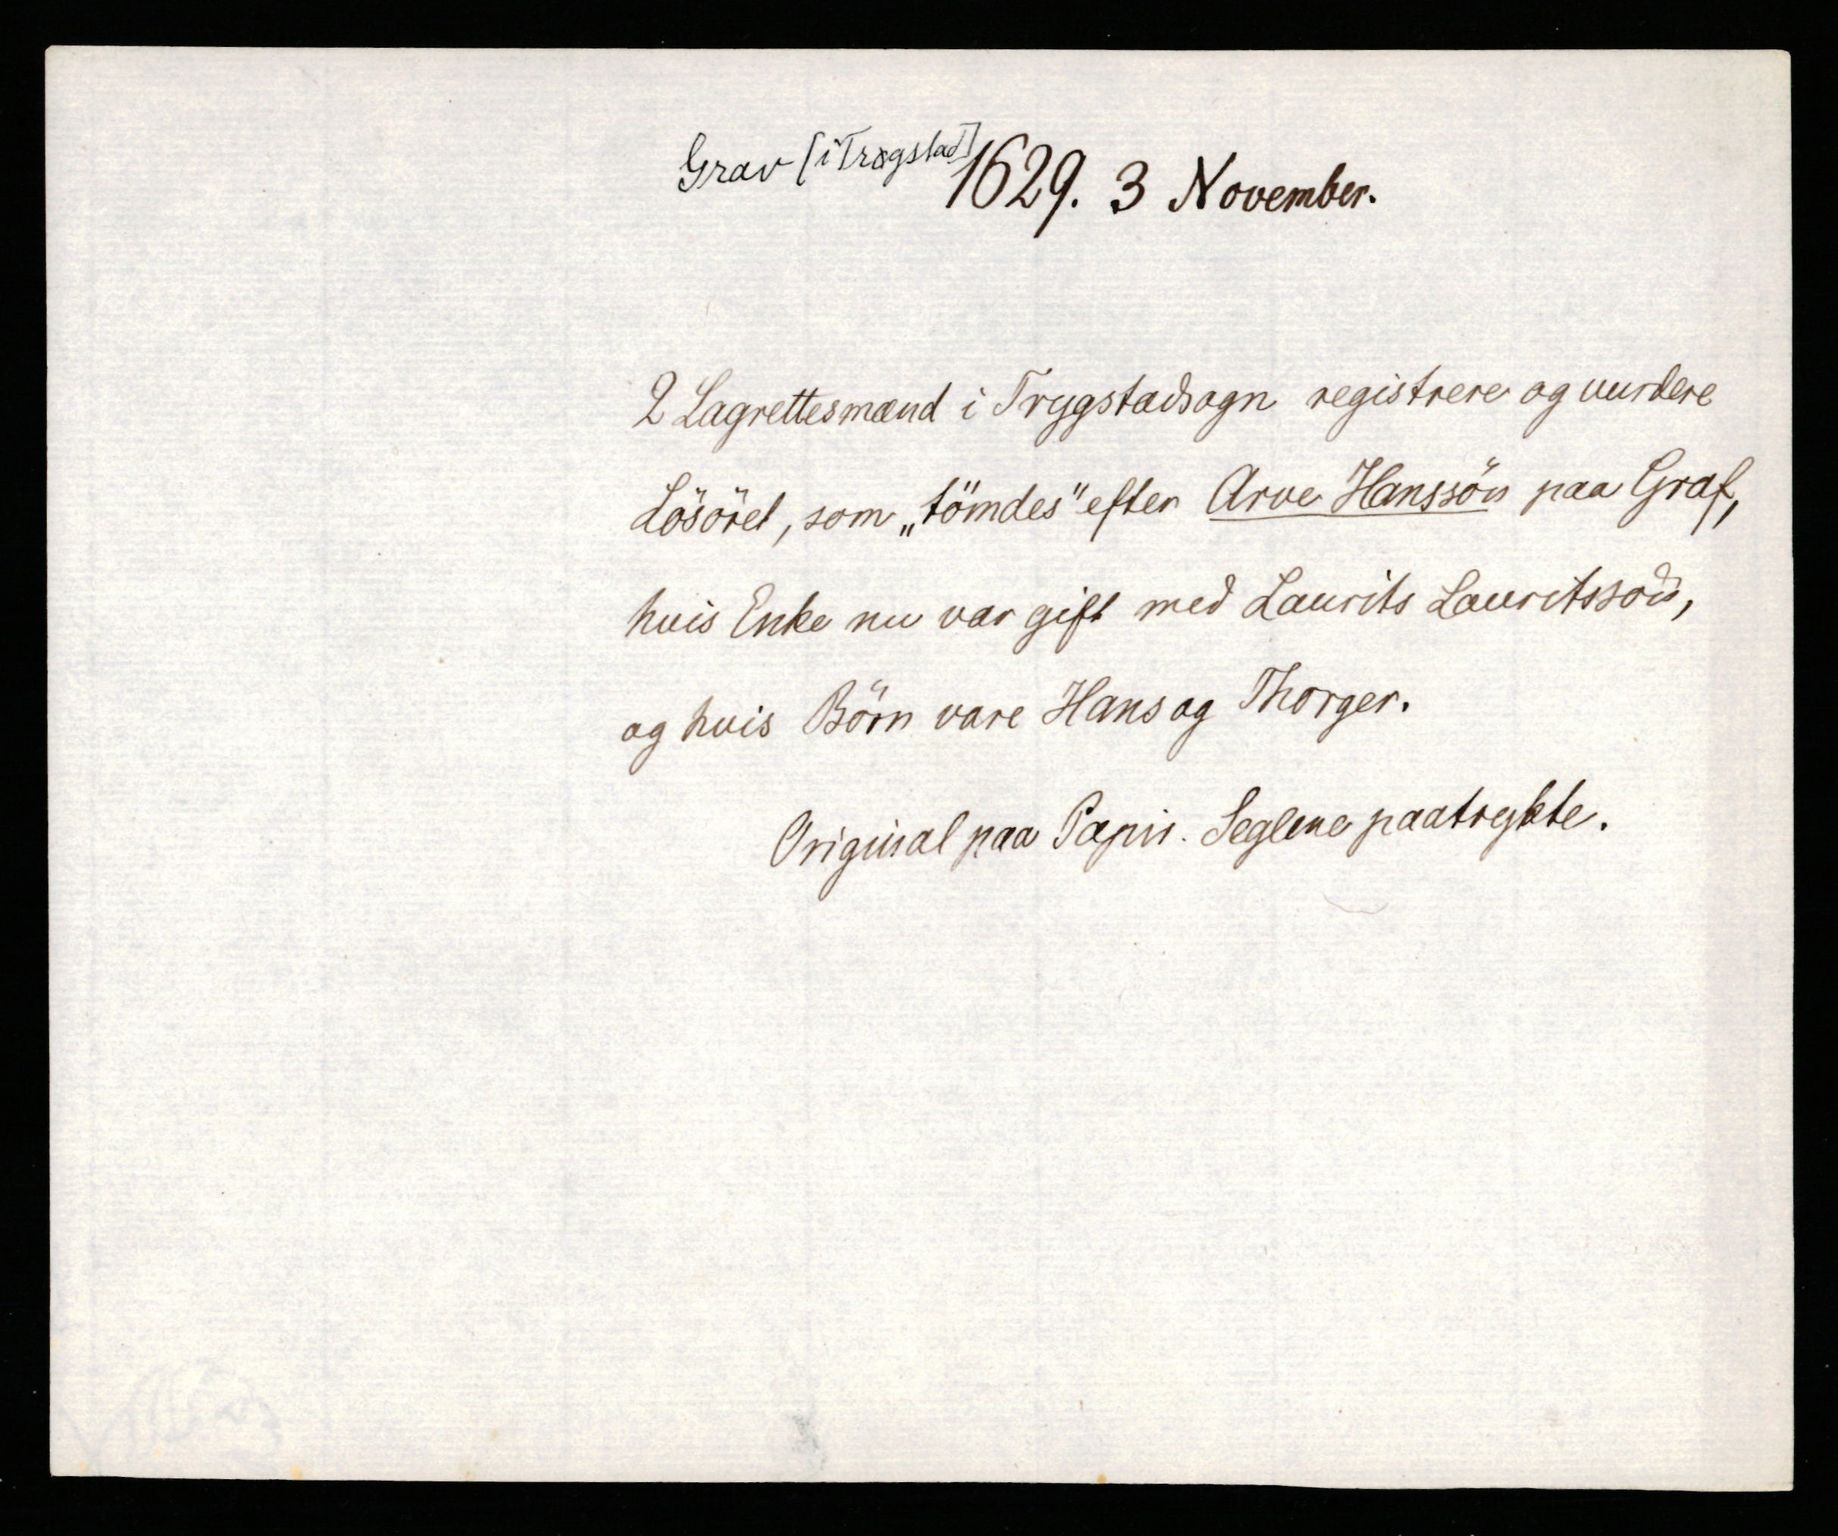 Grav [i Trøgstad]
1629. 3 November.
2 Lagrettesmænd i Trygstadsogn registrere og vurdere
Lösöret, som „tömdes" efter Arve Hanssön paa Graf,
hvis Enke nu var gift med Laurits Lauritssön,
og hvis Börn vare Hans og Thorger.
Original paa Papir. Seglene paatrykte.